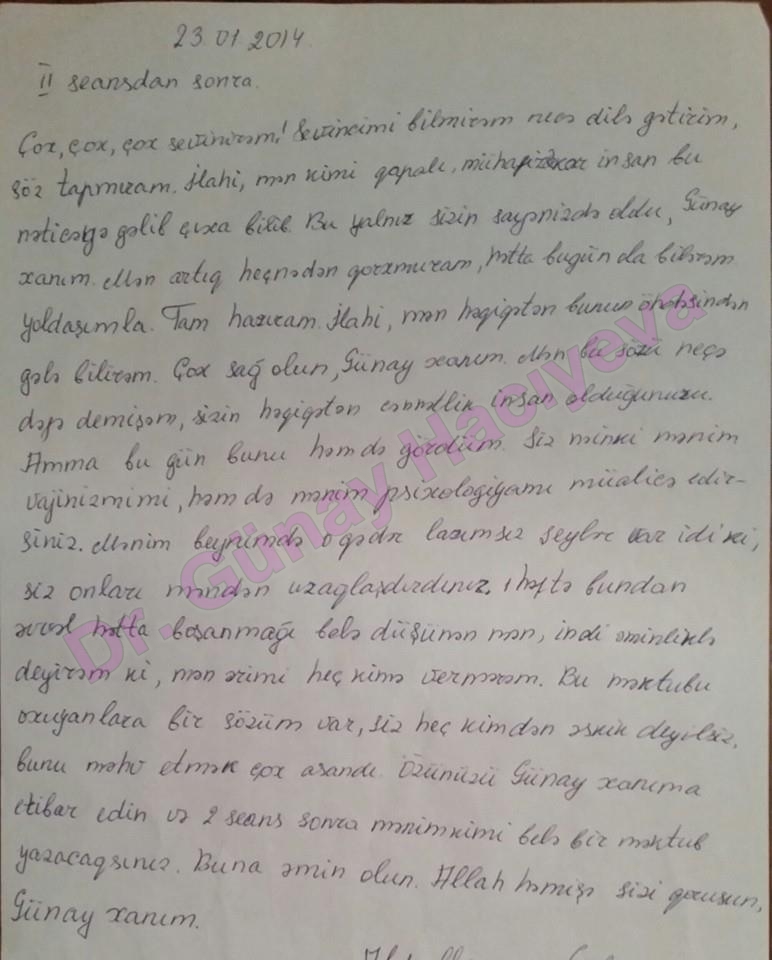 23.01.2014
II seansdan sonra.
Çox, çox, çox sevinirəm! Sevincimi bilmirəm necə dilə gətirim,
söz tapmıram. İlahi, mən kimi qapalı, mühafizəkar insan bu
nəticəyə gəlib çıxa bilib. Bu yalnız sizin sayənizdə oldu, Günay
xanım. Mən artıq heçnədən qorxmuram, hətta bugün da bilərəm
yoldaşımla. Tam hazıram. İlahi, mən həqiqətən bunun öhdəsindən
gələ bilirəm. Çox sağ olun, Günay xanım. Mən bu sözü neçə
dəfə demişəm, sizin həqiqətən cənnətlik insan olduğunuzu.
Amma bu gün bunu həmdə gördüm. Siz nəinki mənim
vajinizmimi, həm də mənim psixologiyamı müalicə edir-
siniz. Mənim beynimdə o qədər lazımsız şeylər var idi ki,
siz onları məndən uzaqlaşdırdınız. 1 həftə bundan
əvvəl hətta boşanmağı belə düşünən mən, indi əminliklə
deyirəm ki, mən ərimi heç kimə vermərəm. Bu məktubu
oxuyanlara bir sözüm var, siz heç kimdən əskik deyilsiz,
bunu məhv etmək çox asandı. Özünüzü Günay xanıma
etibar edin və 2 seans sonra mənimkimi belə bir məktub
yazacaqsınız. Buna əmin olun. Allah həmişə sizi qorusun,
Günay xanım.
Dr. Günay Hacıyeva